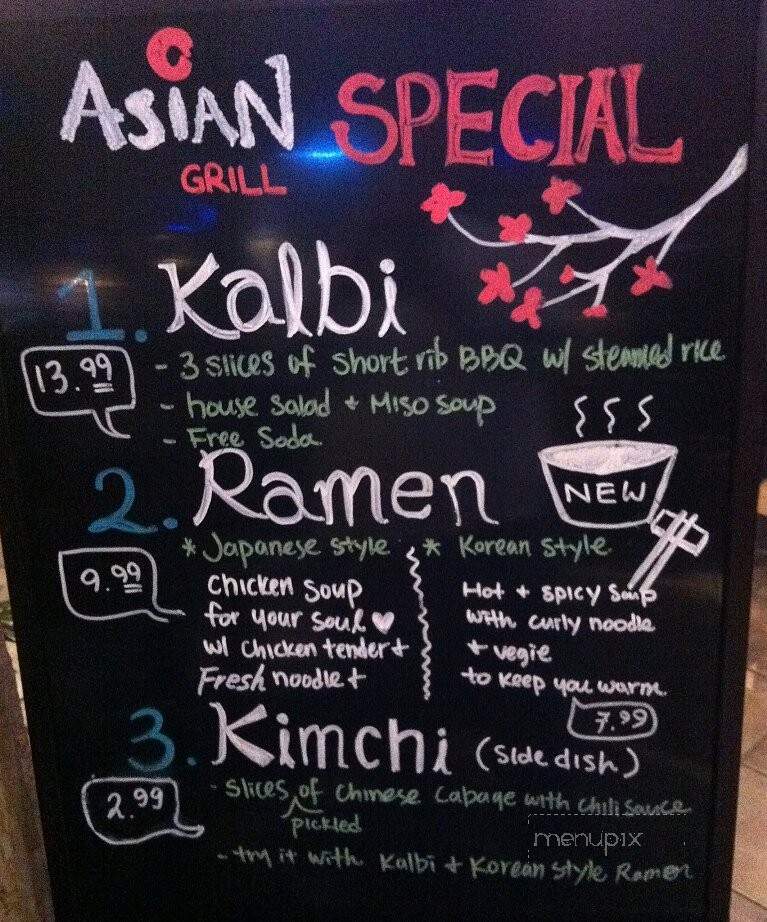 ASIAN SPECIAL
GRILL
1. Kalbi
13.99
- 3 slices of short rib BBQ w/ steamed rice
- house salad + Miso soup
- Free Soda
2. Ramen
NEW
9.99
* Japanese style
chicken soup
for your soul ♥
w/ chicken tender +
Fresh noodle +
* Korean style
Hot + spicy soup
with curly noodle
+ vegie
to keep you warm.
7.99
3. Kimchi (side dish)
2.99
- slices of Chinese Cabage with chili sauce
pickled
- try it with Kalbi + Korean style Ramen
menupix